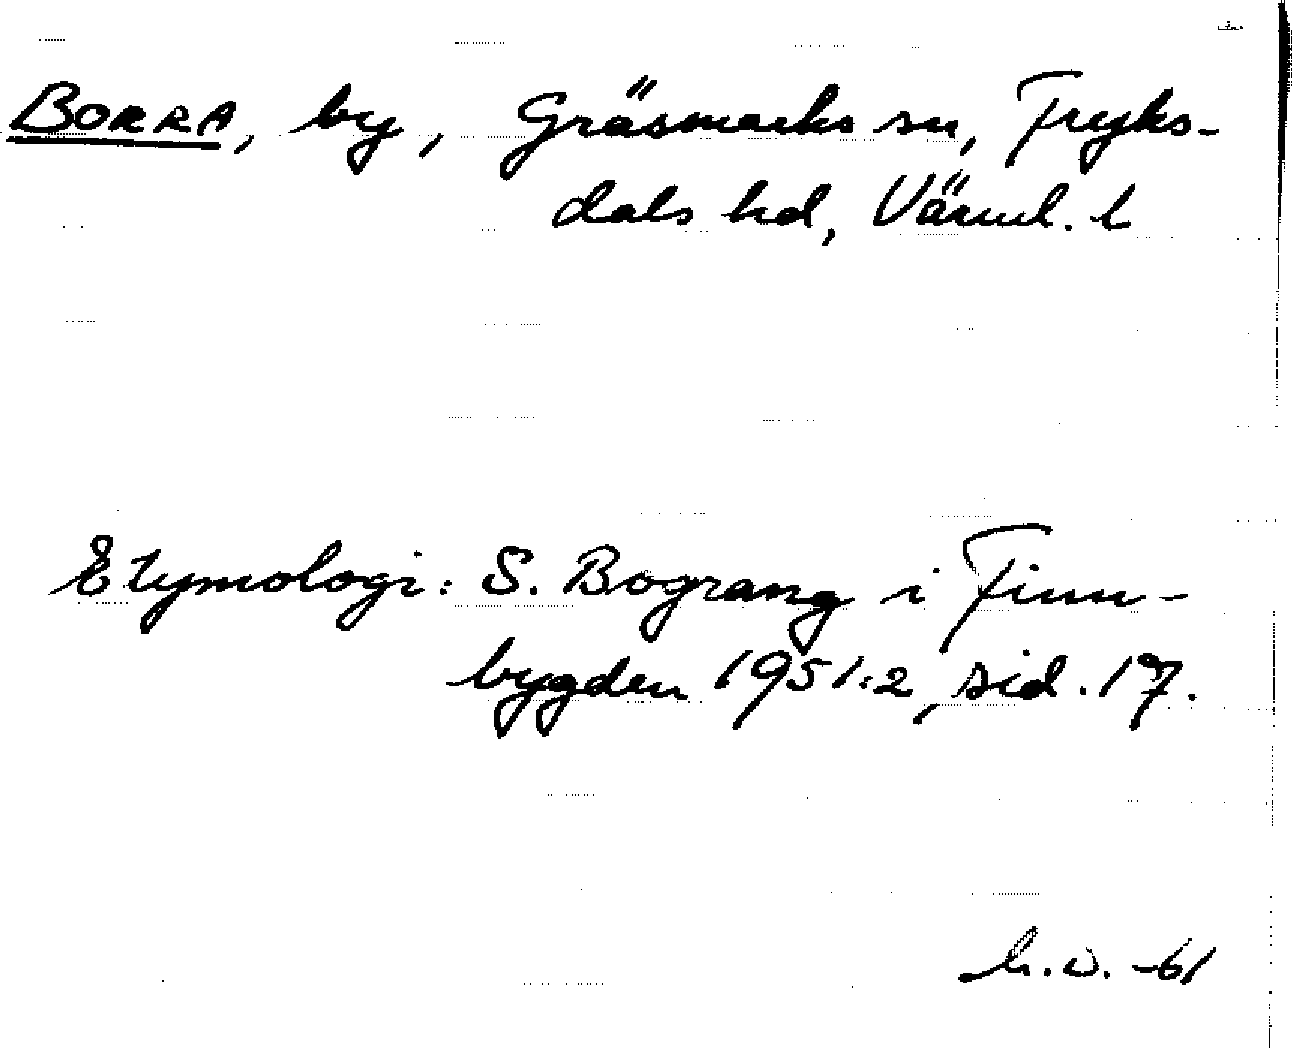 BORRA, by, Gräsmarks sn, Fryks-
dals hd, Värml. l
Etymologi: S. Bograng i Finn-
bygden 1951:2, sid. 17.
h.w. -61